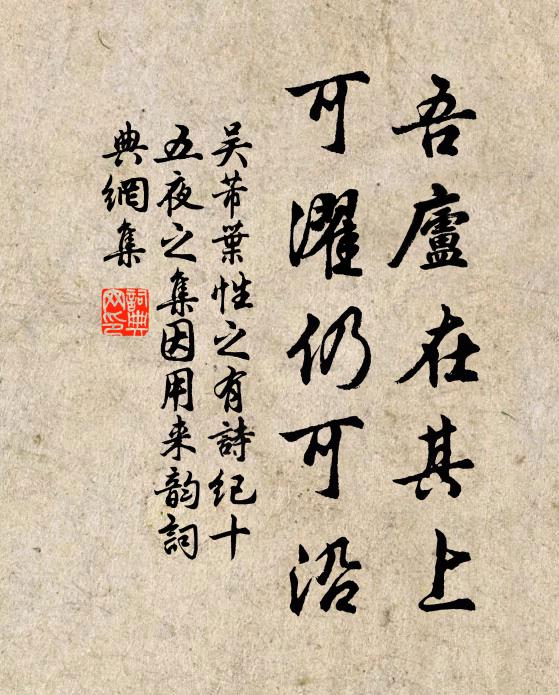 吾廬在其上
可濯仍可沿
吴芾葉性之有詩紀十
五夜之集因用来韵詞
典網集
詞典
网印